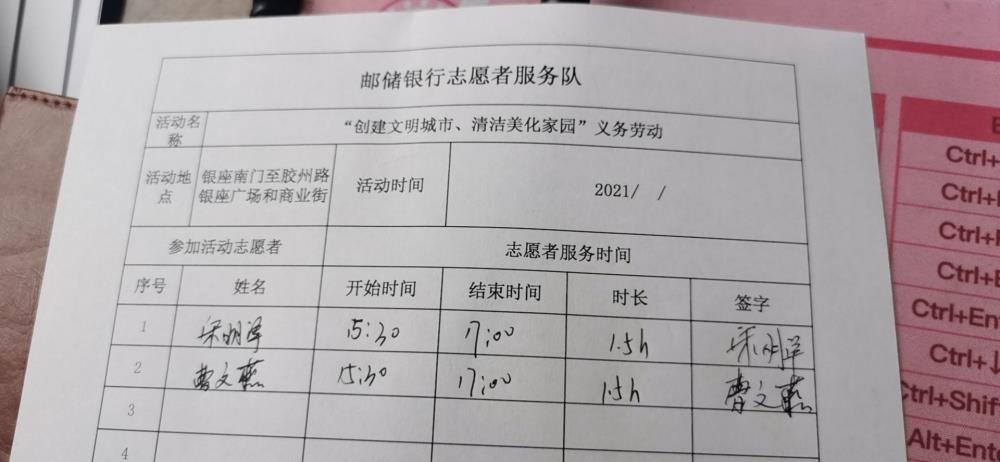 邮储银行志愿者服务队
活动名称 “创建文明城市、清洁美化家园”义务劳动
活动地点 银座南门至胶州路银座广场和商业街 活动时间 2021/ /
参加活动志愿者 志愿者服务时间
序号 姓名 开始时间 结束时间 时长 签字
1 宋明洋 15:30 17:00 1.5h 宋明洋
2 曹文燕 15:30 17:00 1.5h 曹文燕
3
4
Ctrl+
Ctrl+
Ctrl+
Ctrl+
Ctrl+Ent
Ctrl+↓
Ctrl+Shif
Alt+Ente